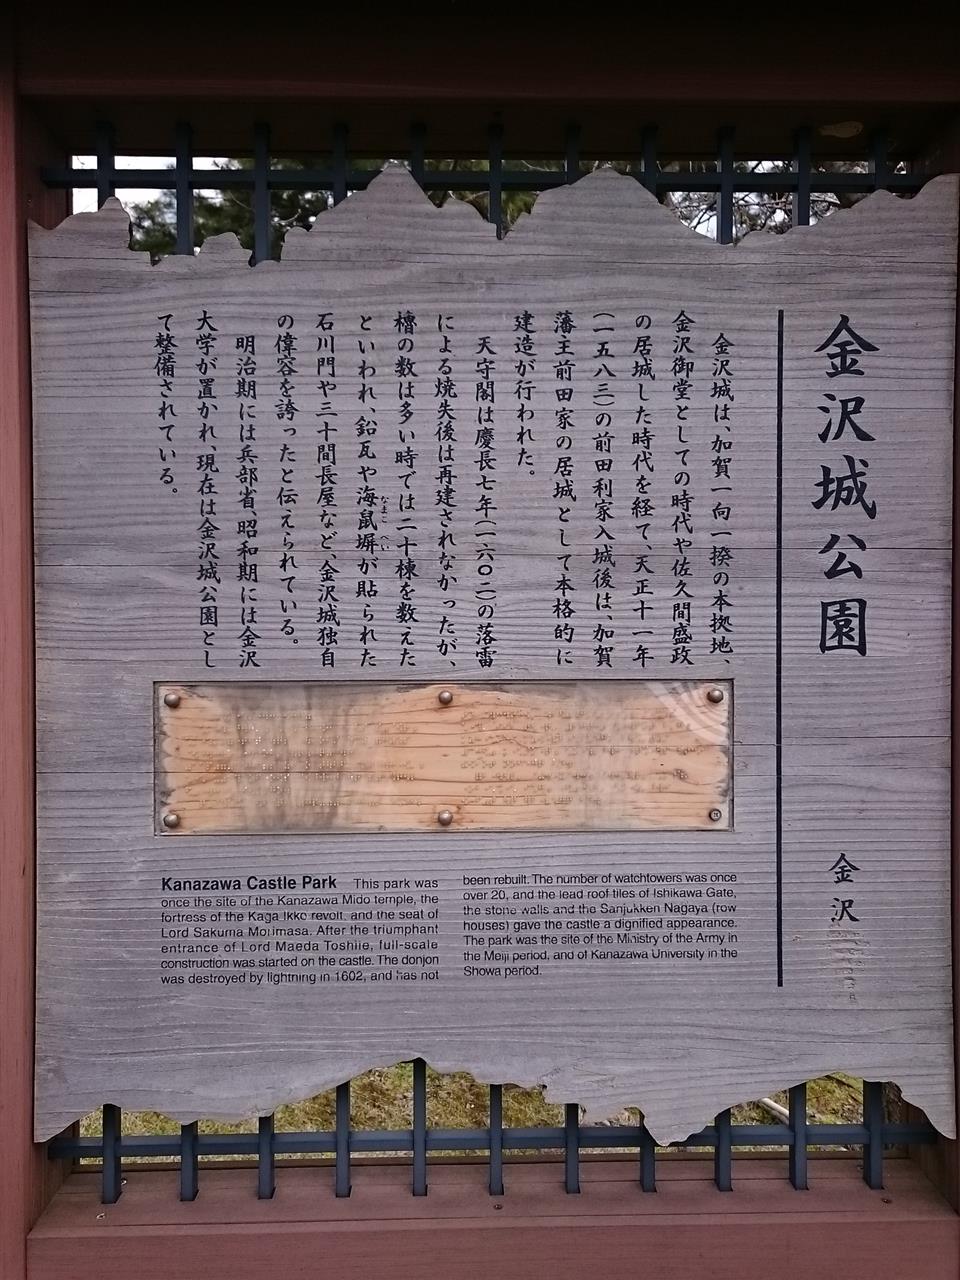 金沢城公園
金沢
金沢城は、加賀一向一揆の本拠地、
金沢御堂としての時代や佐久間盛政
の居城した時代を経て、天正十一年
(一五八三)の前田利家入城後は、加賀
藩主前田家の居城として本格的に
建造が行われた。
天守閣は慶長七年(一六〇二)の落雷
による焼失後は再建されなかったが、
櫓の数は多い時では二十棟を数えた
といわれ、鉛瓦や海鼠塀が貼られた
なまこ べい
石川門や三十間長屋など、金沢城独自
の偉容を誇ったと伝えられている。
明治期には兵部省、昭和期には金沢
大学が置かれ、現在は金沢城公園とし
て整備されている。
Kanazawa Castle Park This park was
once the site of the Kanazawa Mido temple, the
fortress of the Kaga Ikko revolt, and the seat of
Lord Sakuma Morimasa. After the triumphant
entrance of Lord Maeda Toshiie, full-scale
construction was started on the castle. The donjon
was destroyed by lightning in 1602, and has not
been rebuilt. The number of watchtowers was once
over 20, and the lead roof tiles of Ishikawa Gate,
the stone walls and the Sanjukken Nagaya (row
houses) gave the castle a dignified appearance.
The park was the site of the Ministry of the Army in
the Meiji period, and of Kanazawa University in the
Showa period.